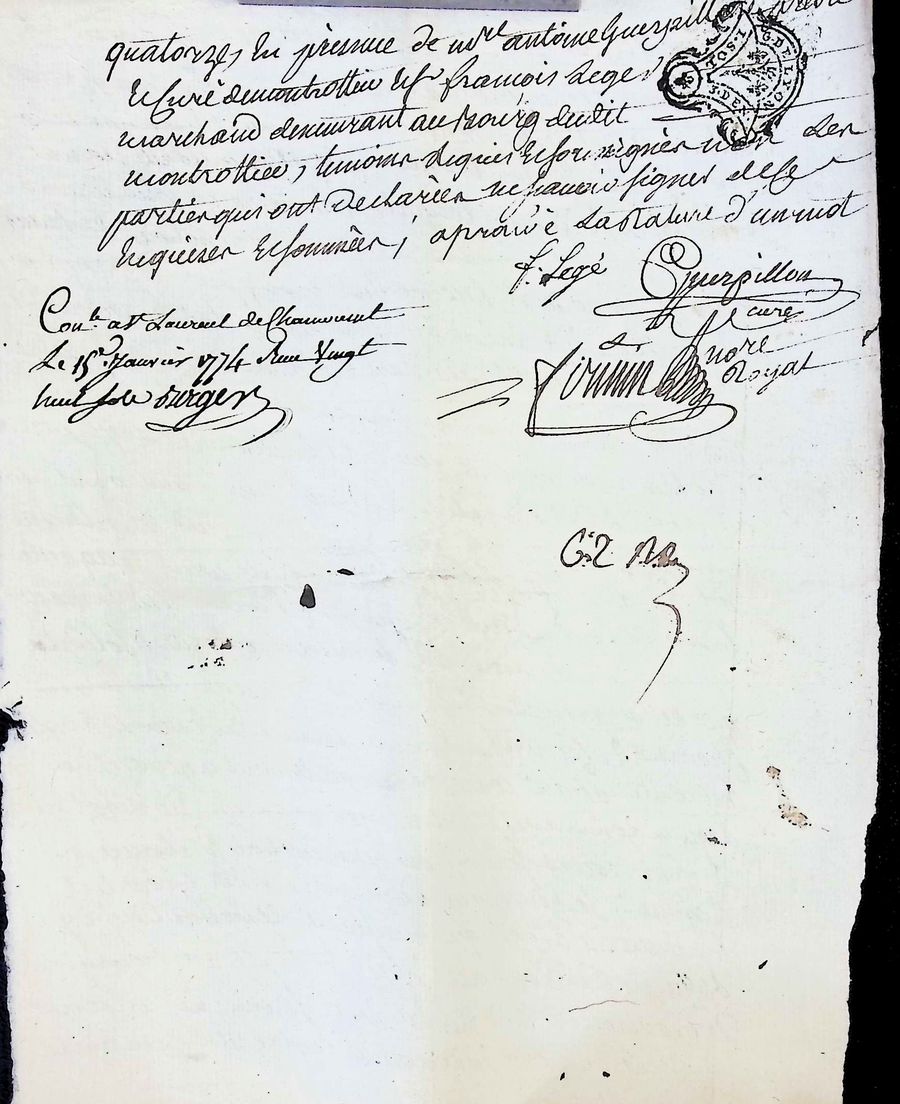 quatorze, En presence de mre antoine Guerpillon prêtre
Et Curé demontrottier Et Sr françois Leger
marchand demeurant au bourg dudit
montrottier, temoins requis Et soussignés non Les
parties qui ont declarées ne sçavoir signer de ce
Enquises Et sommées; aprouvé La rature d'un mot
f. Legé Guerpillon
curé
Conle a St Laurent de Chamousset
Le 15e Janvier 1774 Reçu Vingt
huit sols
nore
Royal
G. DE LYON